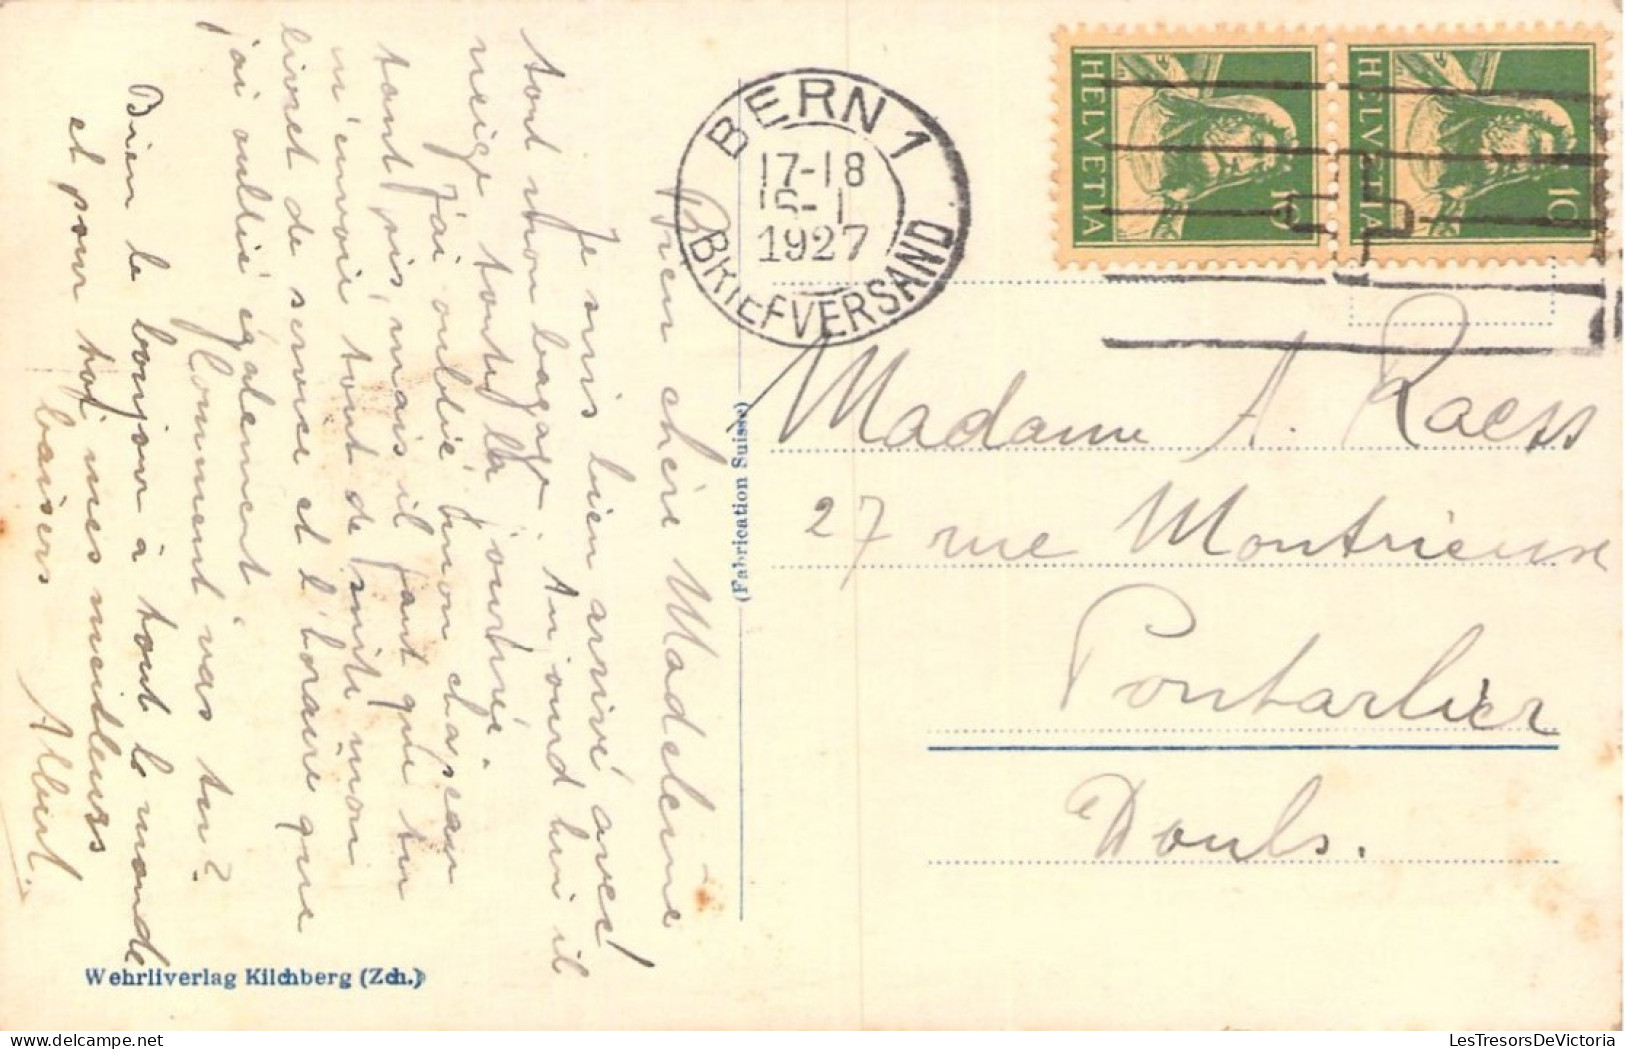 Bien chère Madeleine
Je suis bien arrivé avec!
tout mon bagage. Aujourd'hui il
neige toute la journée.
J'ai oublié mon chapeau
tant pis, mais il faut que tu
m'envoie tout de suite mon
livret de service et l'horaire que
j'ai oublié également.
Comment vas tu?
Bien le bonjour à tout le monde
et pour toi mes meilleurs
baisers
Albert.
Wehrliverlag Kilchberg (Zch.)
(Fabrication Suisse)
BERN 1
17-18
1927
BRIEFVERSAND
HELVETIA
10
HELVETIA
10
Madame A. Raess
27 rue Montrieuse
Pontarlier
Doubs.
LesTresorsDeVictoria